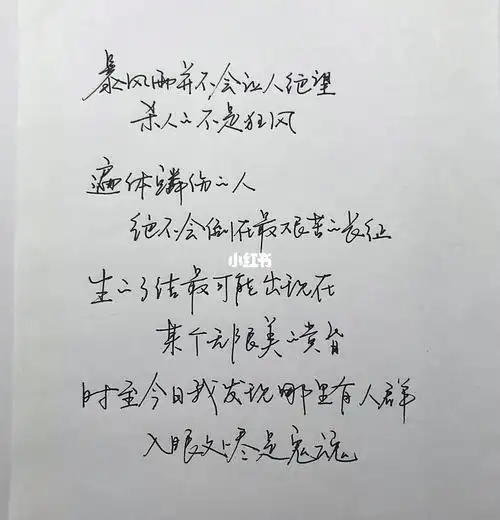 暴风雨并不会让人绝望
杀人的不是狂风
遍体鳞伤的人
绝不会倒在最艰苦的长征
小红书
生的了结最可能出现在
某个无限美的黄昏
时至今日我发现哪里有人群
入眼尽是